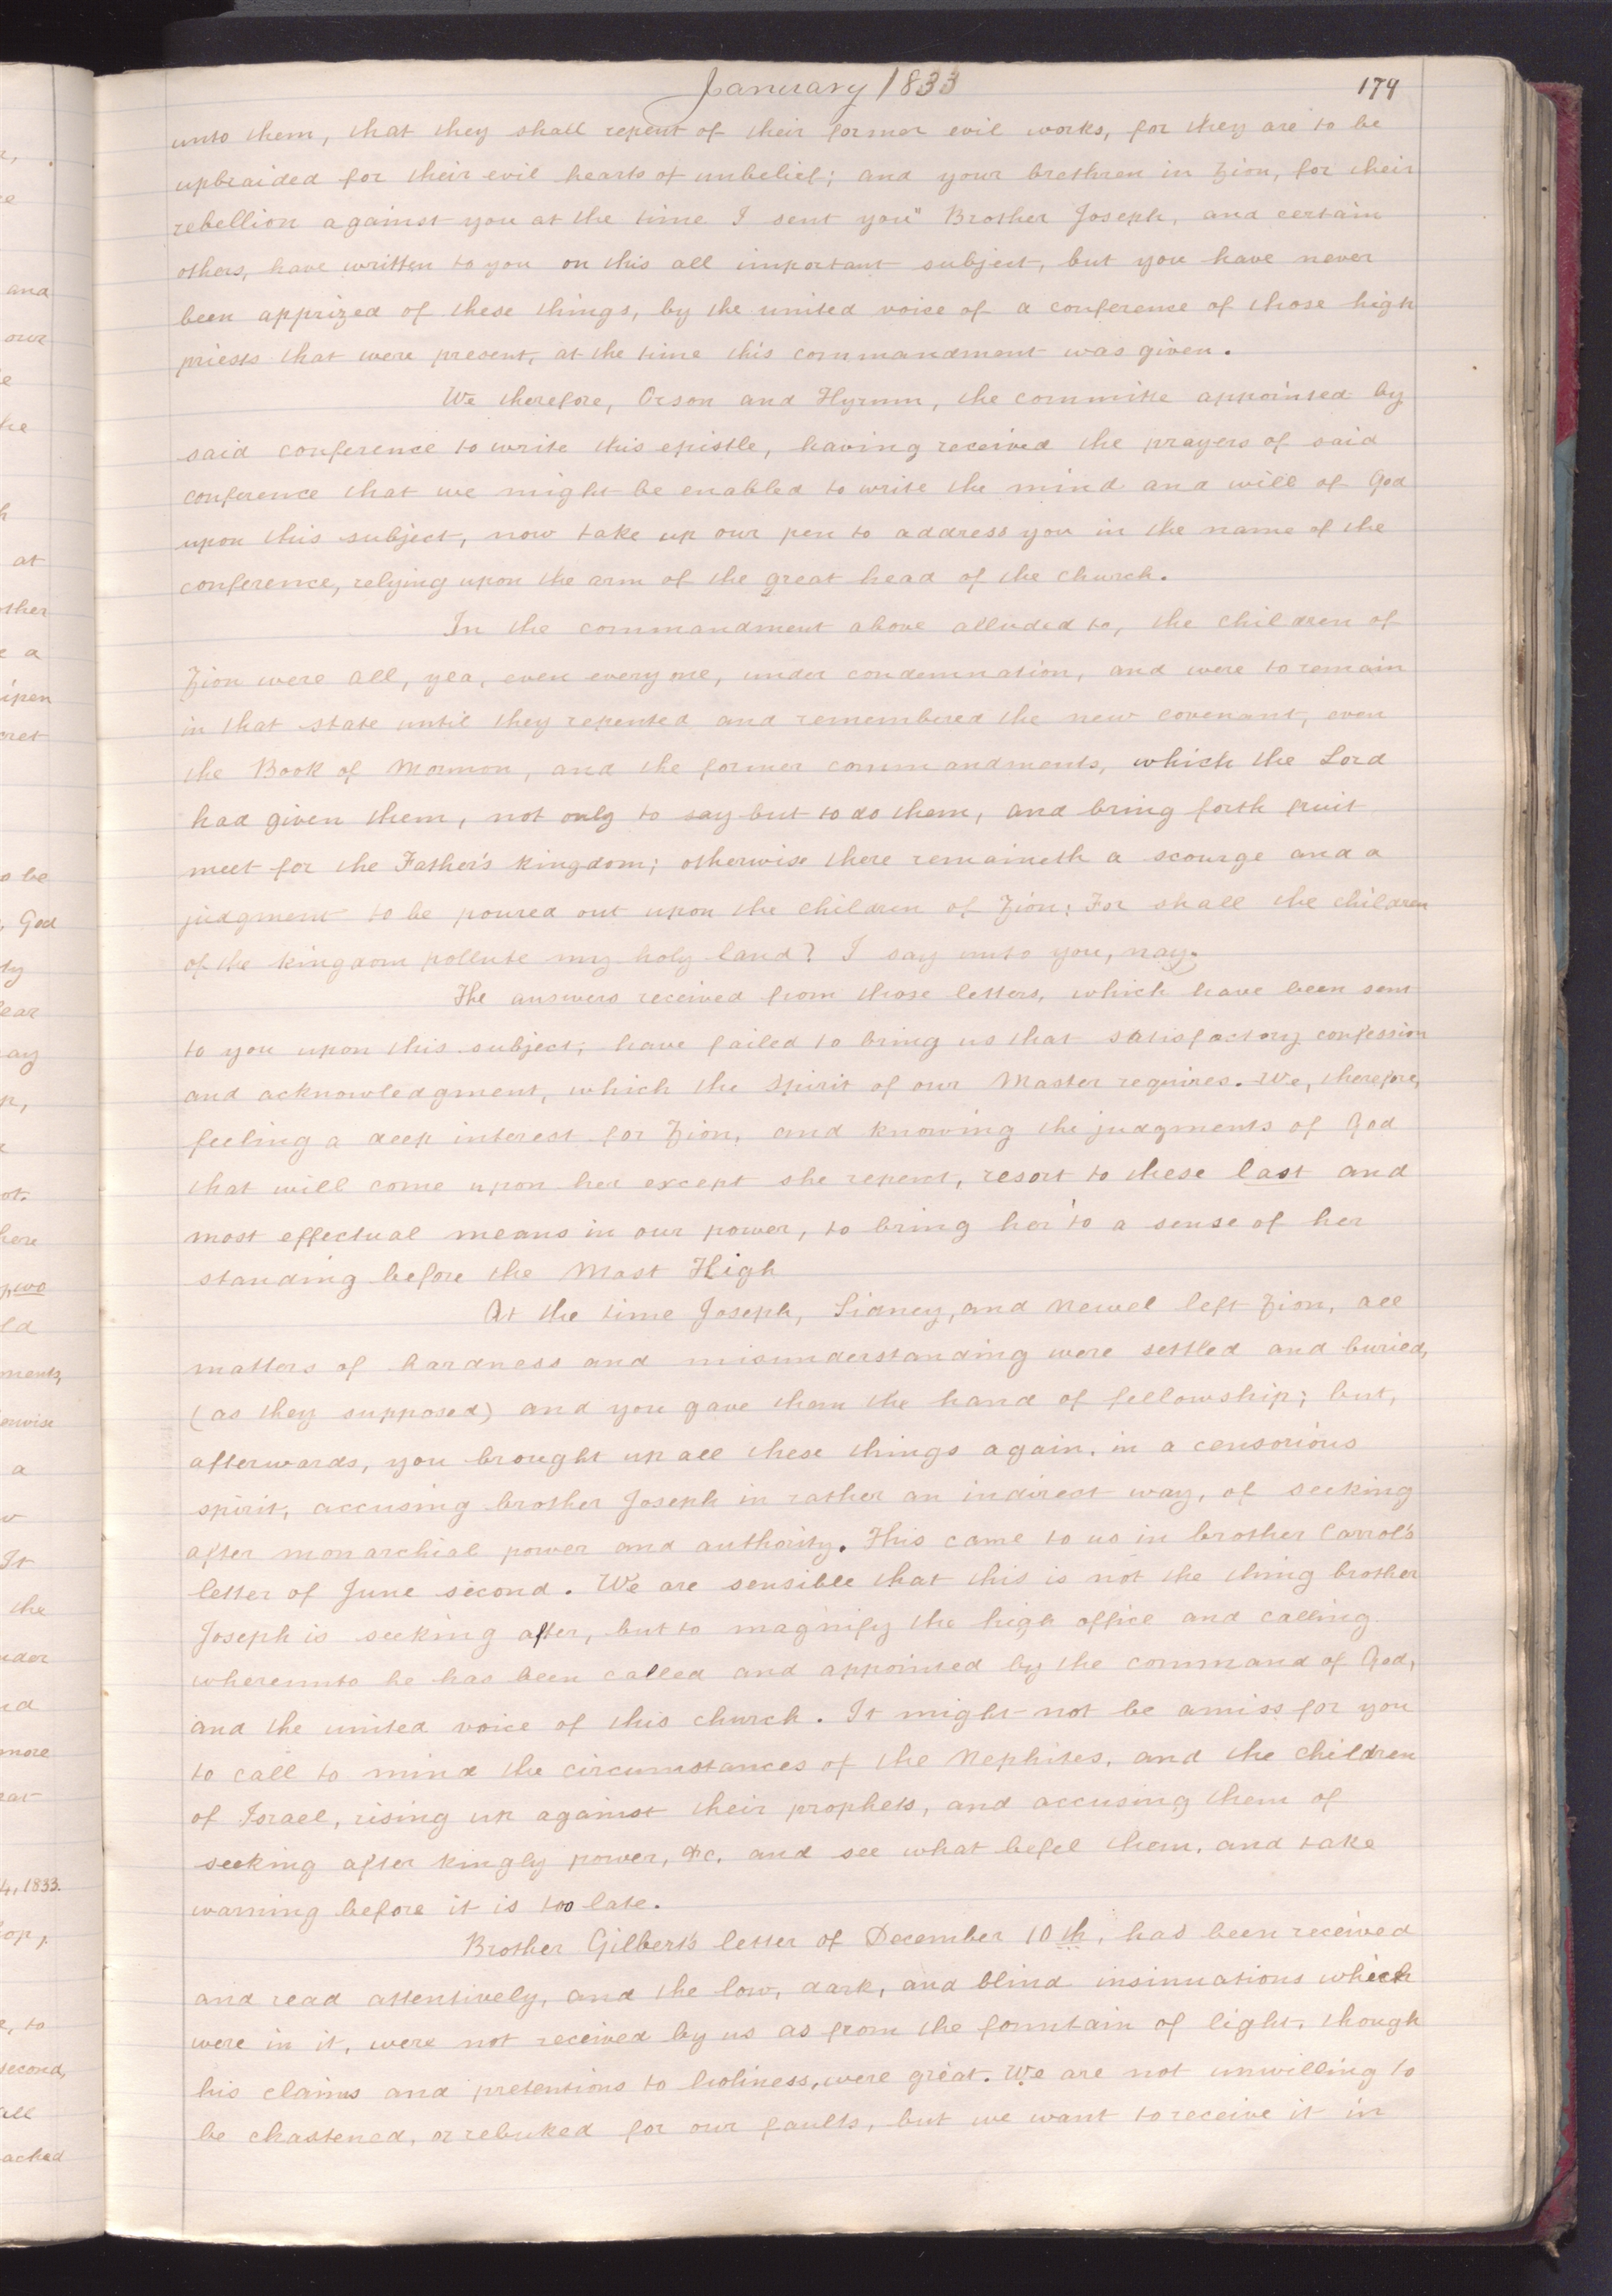 January 1833
174
unto them, that they shall repent of their former evil works, for they are to be
upbraided for their evil hearts of unbelief; and your brethren in Zion, for their
rebellion against you at the time I sent you" Brother Joseph, and certain
others, have written to you on this all important subject, but you have never
been apprized of these things, by the united voice of a conference of those high
priests that were present, at the time this commandment was given.
We therefore, Orson and Hyrum, the committe appointed by
said conference to write this epistle, having received the prayers of said
conference that we might be enabled to write the mind and will of God
upon this subject, now take up our pen to address you in the name of the
conference, relying upon the arm of the great head of the church.
In the commandment above alluded to, the children of
Zion were all, yea, even every one, under condemnation, and were to remain
in that state until they repented and remembered the new covenant, even
the Book of Mormon, and the former commandments, which the Lord
had given them, not only to say but to do them, and bring forth fruit
meet for the Father's kingdom; otherwise there remaineth a scourge and a
judgment to be poured out upon the children of Zion: For shall the children
of the kingdom pollute my holy land? I say unto you, nay.
The answers received from those letters, which have been sent
to you upon this subject, have failed to bring us that satisfactory confession
and acknowledgment, which the Spirit of our Master requires. We, therefore,
feeling a deep interest for Zion, and knowing the judgments of God
that will come upon her except she repent, resort to these last and
most effectual means in our power, to bring her to a sense of her
standing before the Most High
At the time Joseph, Sidney, and Newel left Zion, all
matters of hardness and misunderstanding were settled and buried,
(as they supposed) and you gave them the hand of fellowship; but,
afterwards, you brought up all these things again, in a censorious
spirit, accusing brother Joseph in rather an indirect way, of seeking
after monarchial power and authority. This came to us in brother Carrol's
letter of June second. We are sensible that this is not the thing brother
Joseph is seeking after, but to magnify the high office and calling
whereunto he has been called and appointed by the command of God,
and the united voice of this church. It might not be amiss for you
to call to mind the circumstances of the Nephites, and the children
of Israel, rising up against their prophets, and accusing them of
seeking after kingly power, &c. and see what befel them, and take
warning before it is too late.
Brother Gilbert's letter of December 10th, has been received
and read attentively, and the low, dark, and blind insinuations which
were in it, were not received by us as from the fountain of light, though
his claims and pretentions to holiness, were great. We are not unwilling to
be chastened, or rebuked for our faults, but we want to receive it in